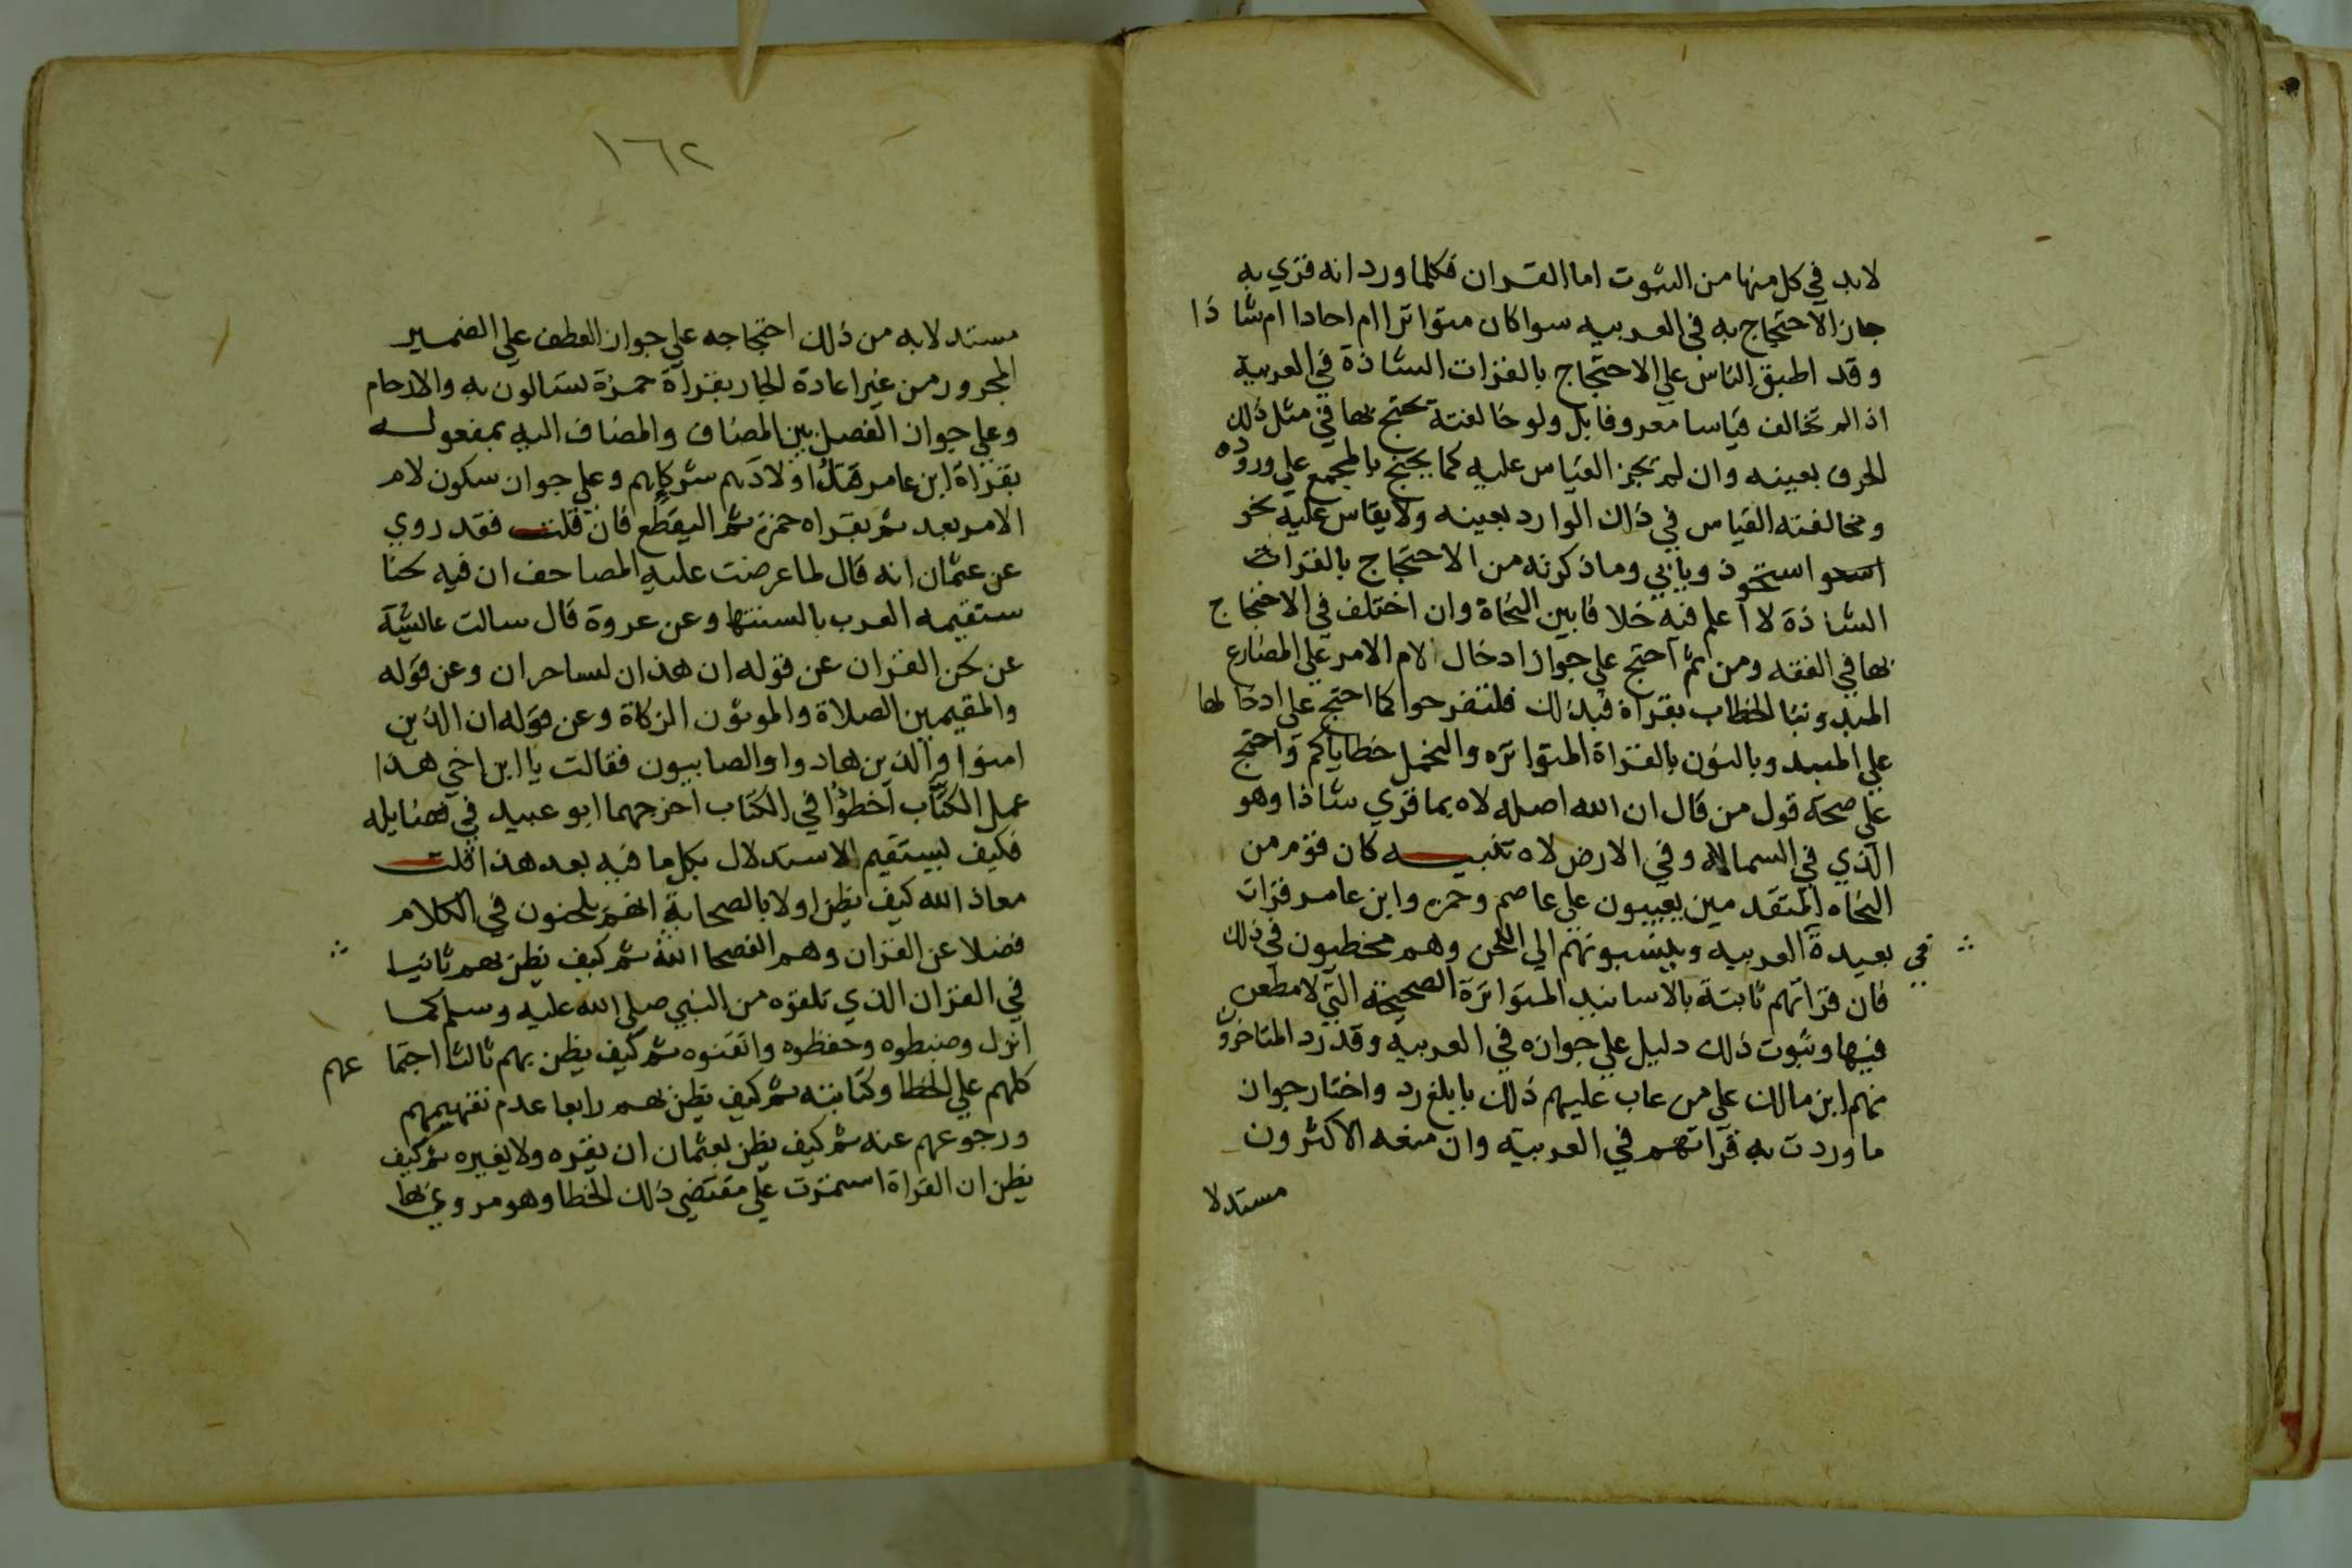 لابد في كل منها من الثبوت اما القران فكلما ورد انه قري به
جاز الاحتجاج به في العربيه سوا كان متواترا ام احادا ام شاذا
وقد اطبق الناس علي الاحتجاج بالقرات الشاذة في العربية
اذا لم تخالف قياسا معروفا بل ولو خالفته يحتج بها في مثل ذلك
الحرف بعينه وان لم يجز القياس عليه كما يحتج بالمجمع علي وروده
ومخالفته القياس في ذلك الوارد بعينه ولا يقاس عليه نحو
استحوذ ويابي وما ذكرته من الاحتجاج بالقرات
الشاذة لا اعلم فيه خلافا بين النحاة وان اختلف في الاحتجاج
بها في الفقه ومن ثم احتج علي جواز ادخال لام الامر علي المضارع
المبدو بتا الخطاب بقراة فبذلك فلتفرحوا كما احتج علي ادخالها
علي المبدو بالنون بالقراة المتواتره والنحمل خطاياكم واحتج
علي صحة قول من قال ان الله اصله لاه بما قري شاذا وهو
الذي في السما لاه وفي الارض لاه تنبيــه كان قوم من
النحاه المتقدمين يعيبون علي عاصم وحمزه وابن عامر قرات
بعيدة في العربيه وينسبونهم الي اللحن وهم مخطيون في ذلك
فان قراتهم ثابتة بالاسانيد المتواترة الصحيحة التي لا مطعن
فيها وثبوت ذلك دليل علي جوازه في العربيه وقد رد المتاخرون
منهم ابن مالك علي من عاب عليهم ذلك بابلغ رد واختار جواز
ما وردت به قراتهم في العربيه وان منعه الاكثرون
مستدلا
١٦٢
مستدلا به من ذلك احتجاجه علي جواز العطف علي الضمير
المجرور من غير اعادة الجار بقراة حمزة تسالون به والارحام
وعلي جواز الفصل بين المضاف والمضاف اليه بمفعوله
بقراة ابن عامر قتل اولادهم شركايهم وعلي جواز سكون لام
الامر بعد ثم بقراه حمزه ثم اليقطع فان قلت فقد روي
عن عثمان انه قال لما عرضت عليه المصاحف ان فيه لحنا
ستقيمه العرب بالسنتها وعن عروة قال سالت عايشة
عن لحن القران عن قوله ان هذان لساحران وعن قوله
والمقيمين الصلاة والموتون الزكاة وعن قوله ان الذين
امنوا والذين هادوا والصابيون فقالت يا ابن اخي هذا
عمل الكتاب اخطؤا في الكتاب اخرجهما ابو عبيد في فضايله
فكيف يستقيم الاستدلال بكل ما فيه بعد هذا قلت
معاذ الله كيف يظن اولا بالصحابة انهم يلحنون في الكلام
فضلا عن القران وهم الفصحا اللد ثم كيف يظن بهم ثانيا
في القران الذي تلقوه من النبي صلي الله عليه وسلم كما
انزل وضبطوه وحفظوه واتقنوه ثم كيف يظن بهم ثالثا اجتماعهم
كلهم علي الخطا وكتابته ثم كيف يظن بهم رابعا عدم تفهيمهم
ورجوعهم عنه ثم كيف يظن بعثمان ان يقره ولا يغيره ثم كيف
يظن ان القراة استمرت علي مقتضي ذلك الخطا وهو مروي بها